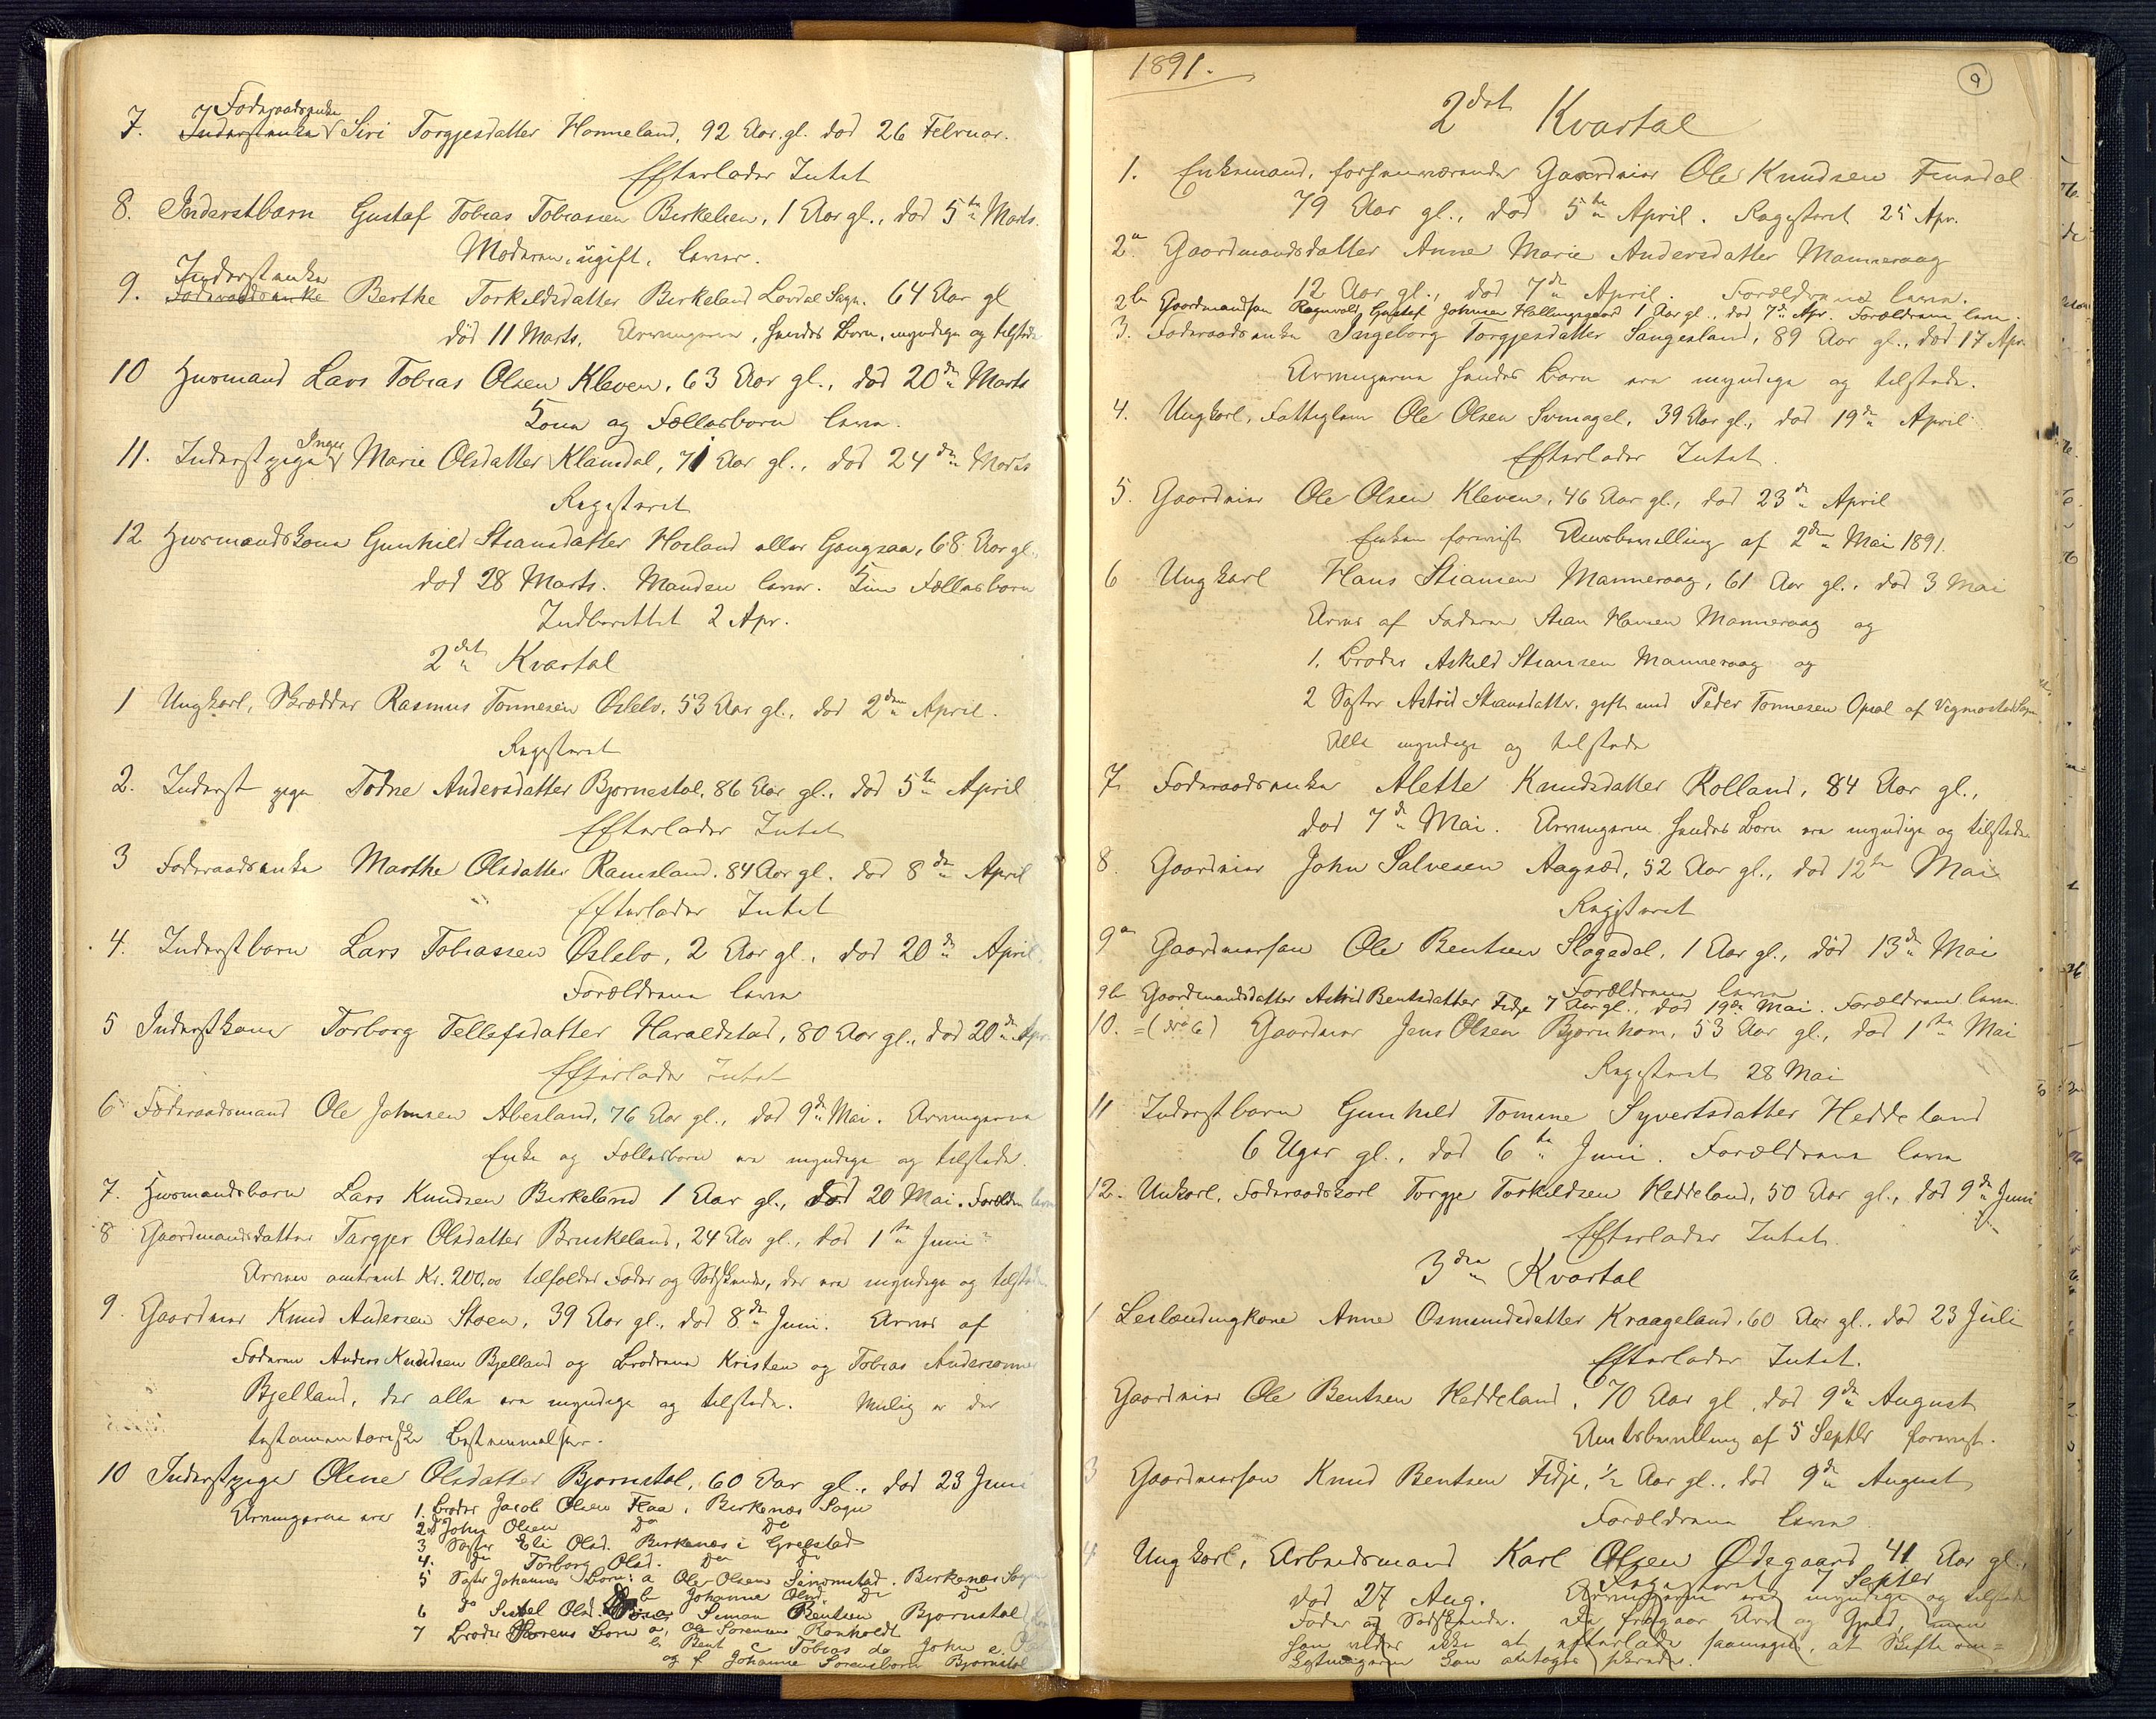 7. Inderstenke Føderaadsenke Siri Torgjesdatter Honneland, 92 Aar gl. død 26 Februar.
Efterlader Intet
8. Inderstbarn Gustaf Tobias Tobiasen Birkelien, 1 Aar gl., død 5te Marts.
Moderen, ugift, lever.
9. Føderaadsenke Inderstenke Berthe Torkildsdatter Birkeland Løvdal Sogn. 64 Aar gl
død 11 Marts. Arvingerne, hendes Børn, myndige og tilstede
10 Husmand Lars Tobias Olsen Kleven, 63 Aar gl., død 20de Marts
Kone og Fællesbørn lever.
11. Inderstpige Inger Marie Olsdatter Klamdal, 71 Aar gl., død 24de Marts
Registeret
12 Husmandskone Gunhild Stiansdatter Høiland eller Gangsaa, 68 Aar gl.
død 28 Marts. Manden lever. Kun Fællesbørn
Indberettet 2 Apr.
2det Kvartal
1 Ungkarl, Skrædder Rasmus Tønnesen Øslebø, 53 Aar gl., død 2den April.
Registeret
2. Inderstpige Todne Andersdatter Bjørnestøl, 86 Aar gl., død 5te April
Efterlader Intet
3 Føderaadsenke Marthe Olsdatter Ramsland. 84 Aar gl. død 8de April
Efterlader Intet
4. Inderstbarn Lars Tobiassen Øslebø, 2 Aar gl., død 20de April.
Forældrene lever
5 Inderstkone Torborg Tellefsdatter Haraldstad, 80 Aar gl., død 20de Apr.
Efterlader Intet
6 Føderaadsmand Ole Johnsen Abesland, 76 Aar gl., død 9de Mai. Arvingerne
Enke og Fællesbørn ere myndige og tilstede.
7. Husmandsbarn Lars Knudsen Birkeland 1 Aar gl., død 20 Mai. Forældre lever
8 Gaardmandsdatter Targjer Olsdatter Bruskeland, 24 Aar gl., død 1ste Juni
Arven omtrent Kr. 200,00 tilfalder Fader og Sødskende, der ere myndige og tilstede
9. Gaardeier Knud Andersen Stoen, 39 Aar gl., død 8de Juni. Arves af
Faderen Anders Knudsen Bjelland og Brødrene Kristen og Tobias Anderssønner
Bjelland, der alle ere myndige og tilstede. Mulig er der
testamentariske Bestemmelser.
10 Inderstpige Oline Olsdatter Bjørnstøl, 60 Aar gl., død 23 Juni
Arvingerne ere 1. Broder Jacob Olsen Flaa, Birkenæs Sogn
2 do John Olsen do do
3 Søster Eli Olsd. Birkenæs i Greipstad
4. do Torborg Olsd. do do
5 Søster Johannes Børn: a Ole Olsen. Birkenæs Sogn
b Johanne Olsd. do do
6 do Sissel Olsd. Børn a Simon Bentsen Bjørnstøl
7 Broder Sørens Børn a, Ole Sørensen Ronholdt
b Bent c Tobias d John e.
og f Johanne Sørensbørn Bjørnstøl
1891.
9
2det Kvartal
1. Enkemand, forhenværende Gaardeier Ole Knudsen Finsdal
79 Aar gl., død 5te April. Registeret 25 Apr.
2a Gaardmandsdatter Anne Marie Andersdatter Manneraag
12 Aar gl., død 7de April. Forældrene lever.
2b Gaardmandsøn Ragnvald Gustaf Johnsen Hallingsgaard 1 Aar gl., død 7de Apr. Forældrene lever.
3. Føderaadsenke Ingeborg Torgjesdatter Sangesland, 89 Aar gl., død 17 Apr.
Arvingerne hendes Børn ere myndige og tilstede.
4. Ungkarl, Fattiglem Ole Olsen Svinagel, 39 Aar gl., død 19de April
Efterlader Intet.
5. Gaardeier Ole Olsen Kleven, 46 Aar gl., død 23de April
Enken forevist Amtsbevilling af 2den Mai 1891.
6 Ungkarl Hans Stiansen Manneraag, 61 Aar gl., død 3 Mai
Arves af Faderen Stian Hansen Manneraag og
1. Broder Askild Stiansen Manneraag og
2 Søster Astrid Stiansdatter, gift med Peder Tønnesen Opsal af Vegmostad Sogn
Alle myndige og tilstede
7. Føderaadsenke Alette Knudsdatter Rolland, 84 Aar gl.,
død 7de Mai. Arvingerne hendes Børn ere myndige og tilstede
8. Gaardeier John Salvesen Aagsæd, 52 Aar gl., død 12te Mai
Registeret
9a Gaardeiersøn Ole Bentsen Hagedal, 1 Aar gl., død 13de Mai
Forældrene lever
9b Gaardmandsdatter Astrid Bentsdatter Fidje 7 Aar gl., død 19de Mai. Forældrene lever.
10. Gaardeier Jens Olsen Bjørnhom, 53 Aar gl., død 1ste Mai
Registeret 28 Mai
11 Inderstbarn Gunhild Tomine Syvertsdatter Heddeland
6 Uger gl., død 6te Juni. Forældrene lever
12. Unkarl, Føderaadskarl Torgje Torkildsen Heddeland, 50 Aar gl., død 9de Juni
Efterlader Intet.
3die Kvartal
1 Leilændingkone Anne Osmundsdatter Kraageland, 60 Aar gl., død 23 Juli
Efterlader Intet.
Gaardeier Ole Bentsen Heddeland, 70 Aar gl, død 9de August
Amtsbevilling af 5 Septbr forevist.
3 Gaardeiersøn Knud Bentsen Fidje, 1/2 Aar gl., død 9de August
Forældrene lever
4 Ungkarl, Arbeidsmand Karl Olsen Ødegaard 41 Aar gl.,
Registeret 7 Septer
død 27 Aug. Arvingerne ere myndige og tilstede
Fader og Sødskende. De fragaar Arv og Gjæld, men